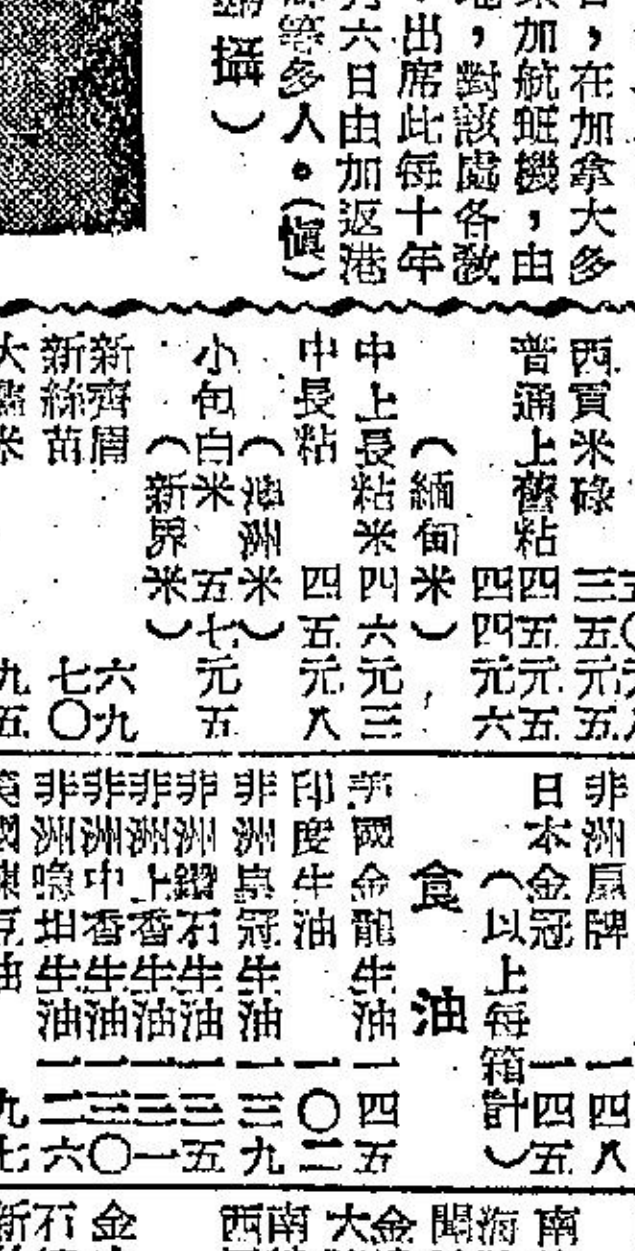 ，在加拿大多
加航班機，由
，對該處各教
出席此每十年
六日由加返港
等多人。（愼）
攝）
西貢米碌 三五元五
普通上舊粘 四五元五
四四元六
（緬甸米）
中上長粘米 四六元三
中長粘 四五元八
（澳洲米）
小包白米 五七元五
（新界米）
新齊眉 六九
新絲苗 七〇
米 九五
非洲鳳牌 一四八
日本金冠 一四五
（以上每箱計）
食油
英國金龍生油 一四五
印度生油 一〇二
非洲皇冠生油 一三九
非洲鑽石生油 一三五
非洲上香生油 一三一
非洲中香生油 一三〇
非洲喙坦生油 一二六
油 九七
南
海
閩
金
大
南
西
金
石
新